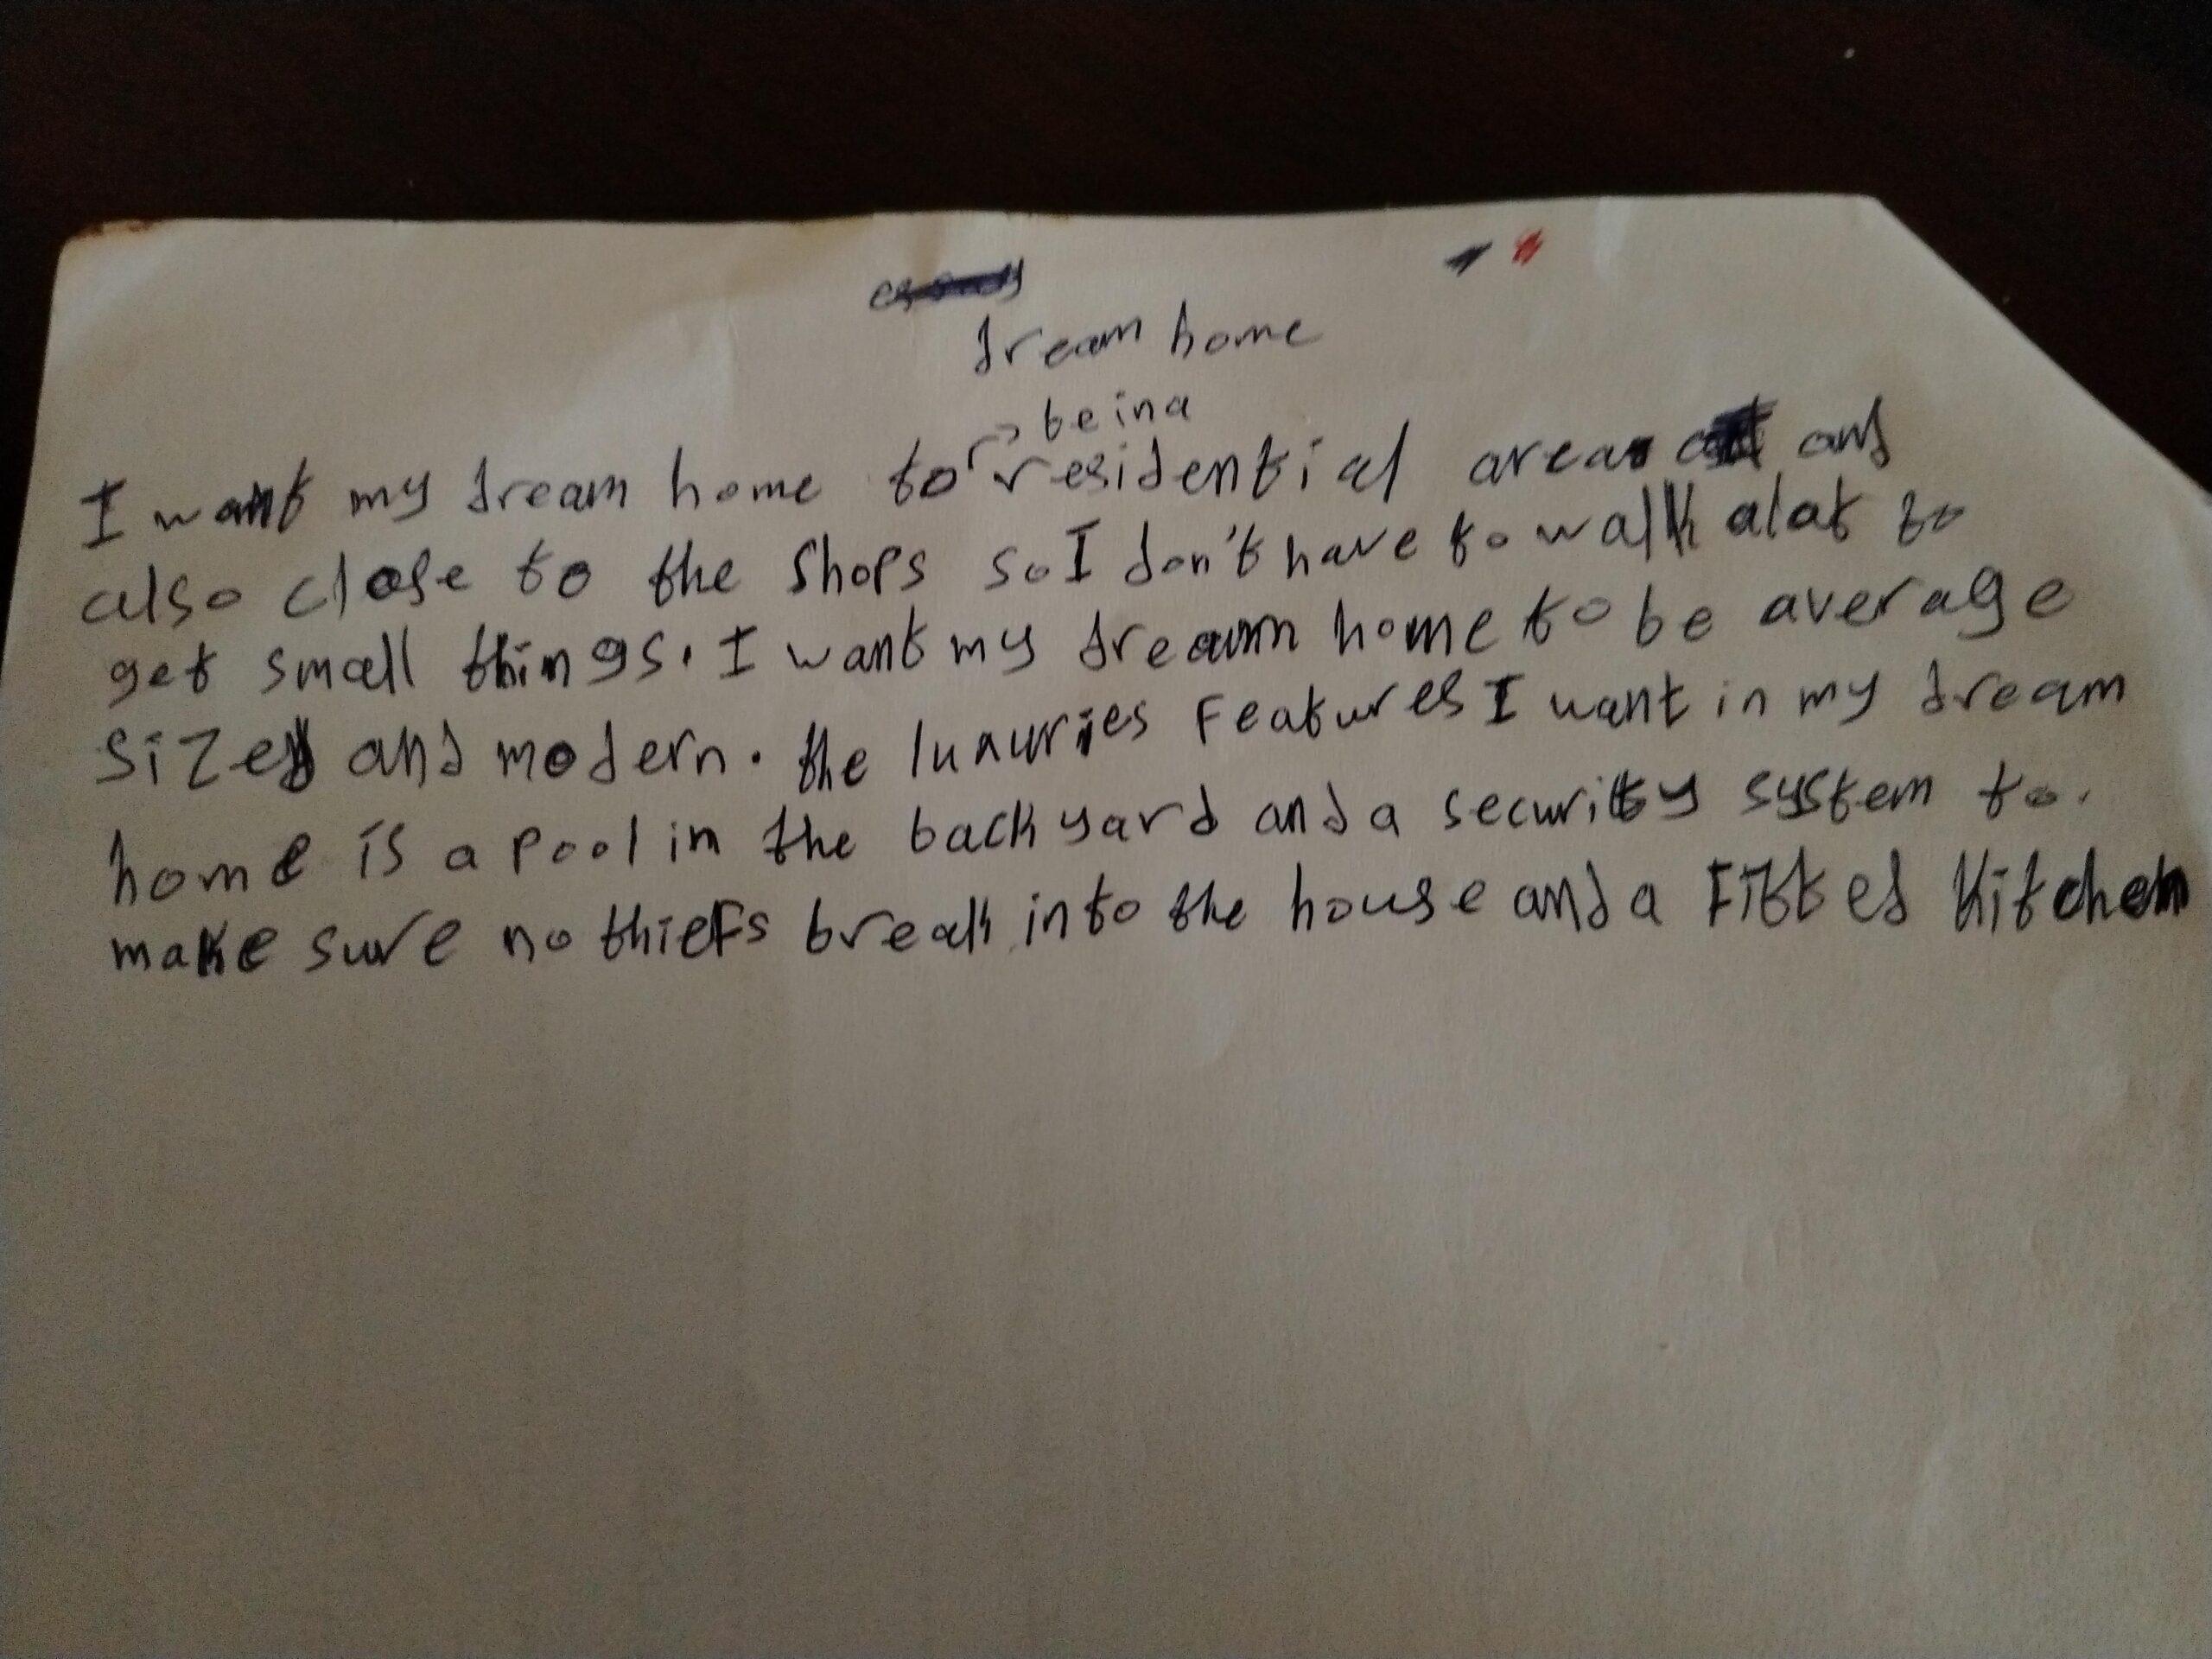 essay
dream home
be in a
I want my dream home to residential area and
also close to the shops so I don't have to walk alot to
get small things. I want my dream home to be average
sized and modern. the luxuries Features I want in my dream
home is a pool in the backyard and a security system to.
make sure no thiefs break into the house and a Fitted Kitchen